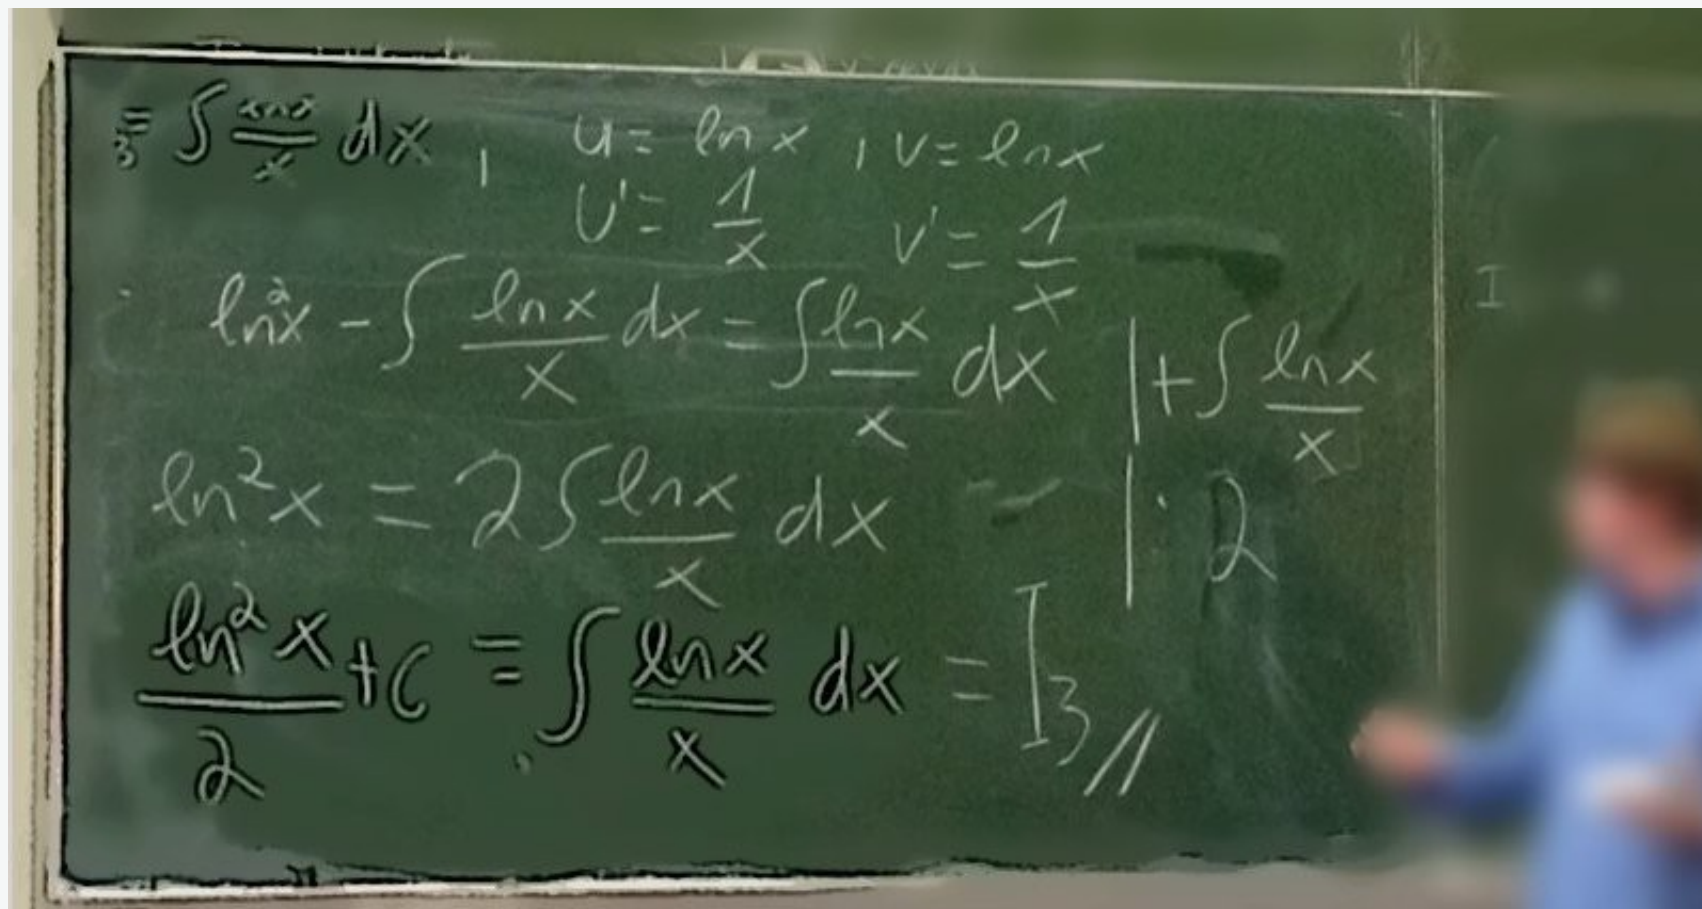 3 = ∫ dx , u = ln x , v = ln x
u' = 1/x v' = 1/x
ln²x - ∫ ln x / x dx = ∫ ln x / x dx | + ∫ ln x / x
ln²x = 2 ∫ ln x / x dx | · 2
ln²x / 2 + C = ∫ ln x / x dx = I₃ //
I